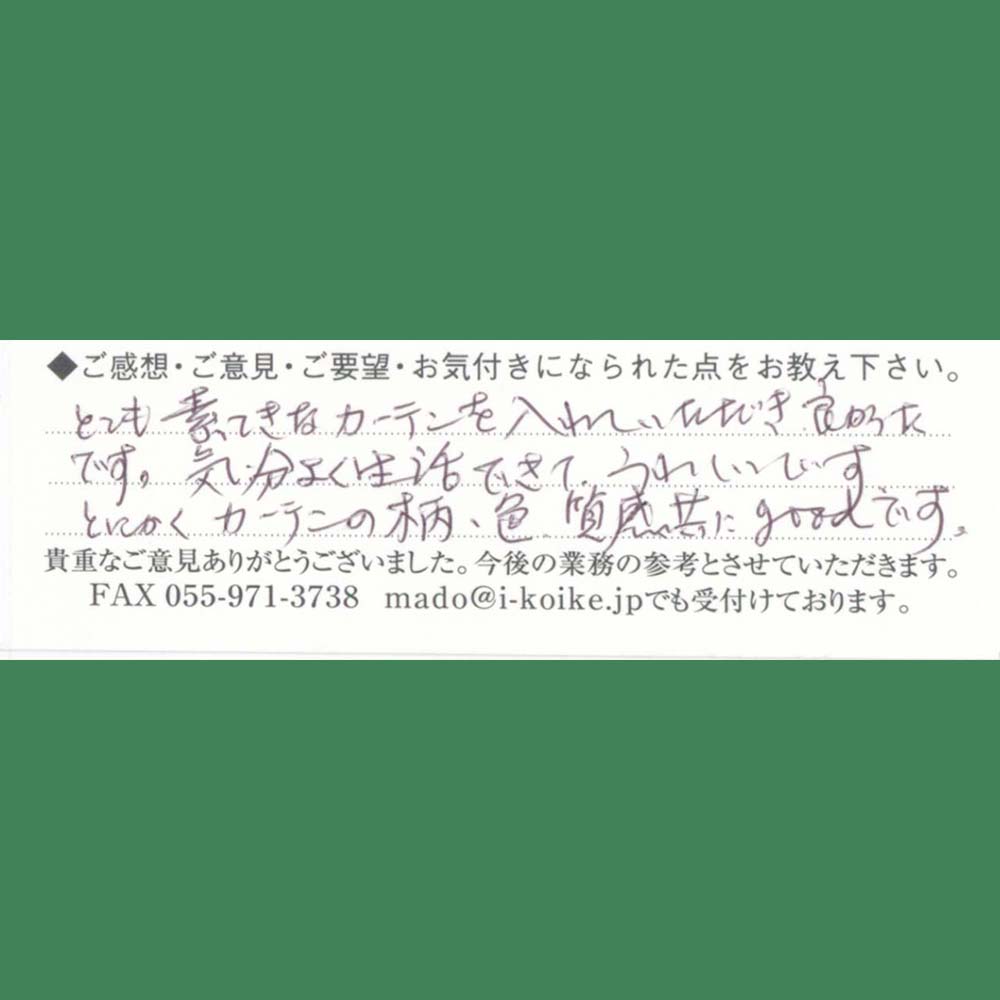 ◆ご感想・ご意見・ご要望・お気付きになられた点をお教え下さい。
とても素てきなカーテンを入れていただき良かった
です。気分よく生活できて、うれしいです
とにかくカーテンの柄、色、質感共にgoodです。
貴重なご意見ありがとうございました。今後の業務の参考とさせていただきます。
FAX 055-971-3738 mado@i-koike.jpでも受付けております。